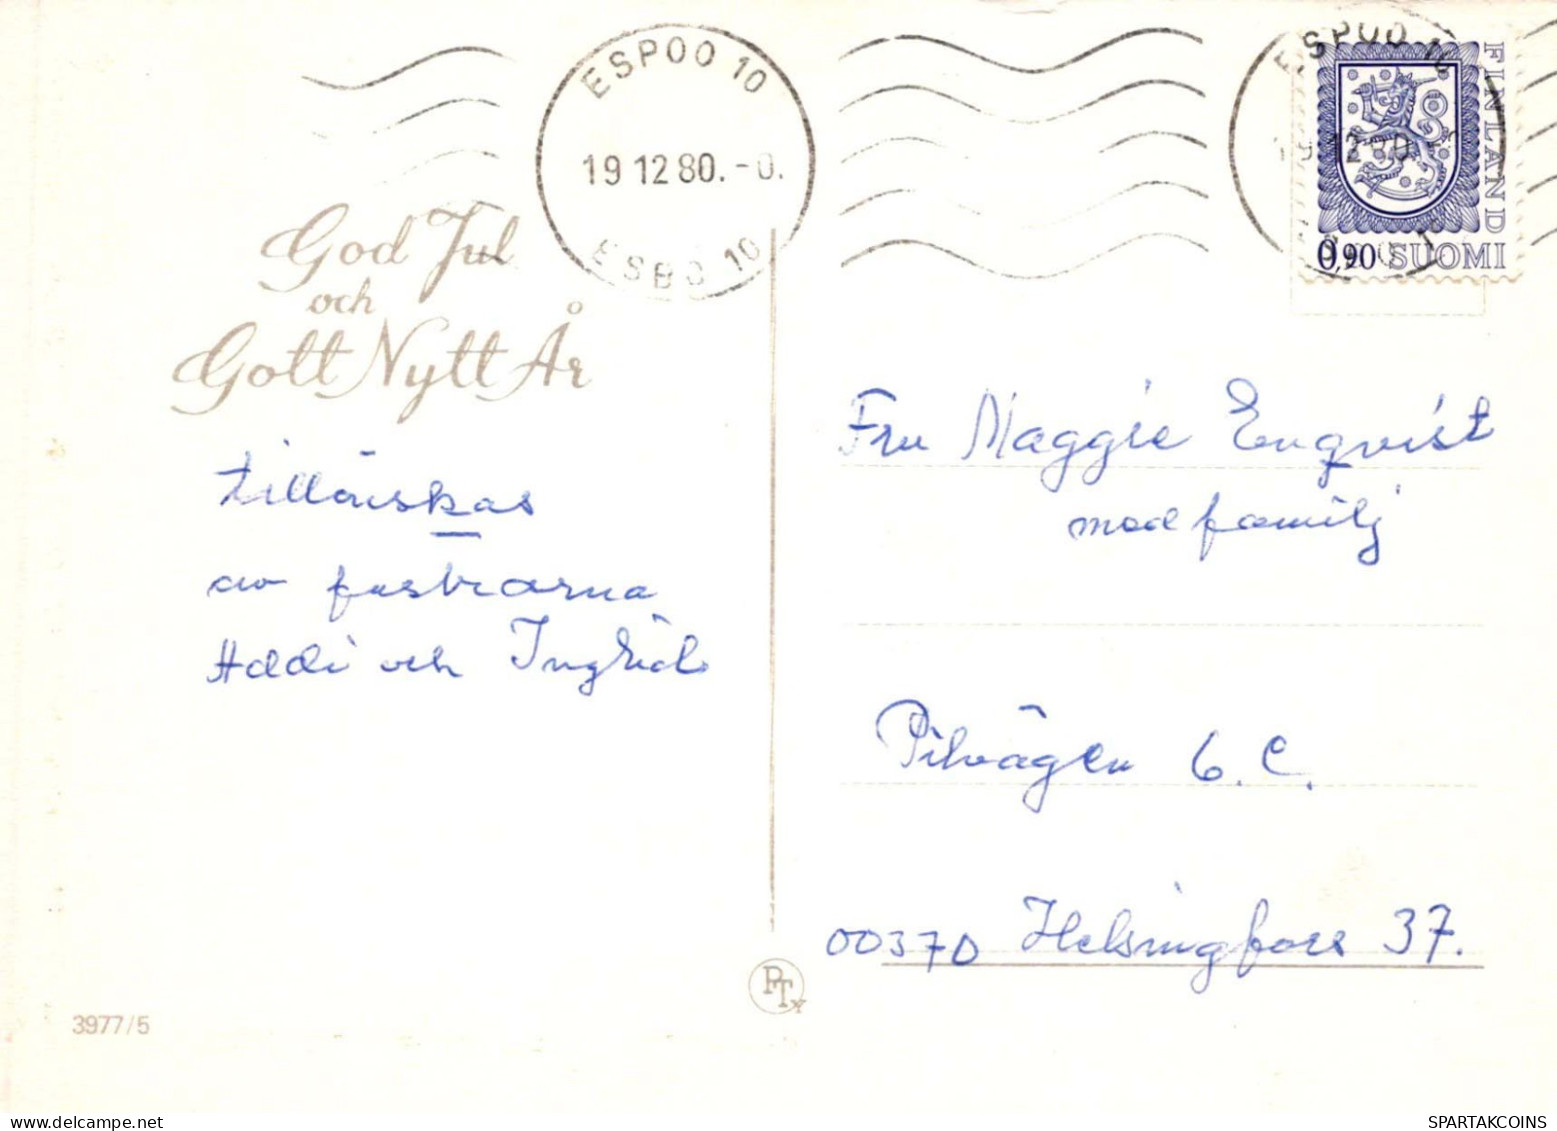 ESPOO 10
19 12 80. - 0.
ESBO 10
ESPOO 10
19 12 80. -
FINLAND
0,90 SUOMI
God Jul
och
Gott Nytt År
tillönskas
av fastrarna
Addi och Ingrid
Fru Maggie Enqvist
med familj
Pilvägen 6. C.
00370 Helsingfors 37.
PTxy
3977/5
SPARTAKCOINS
delcampe.net